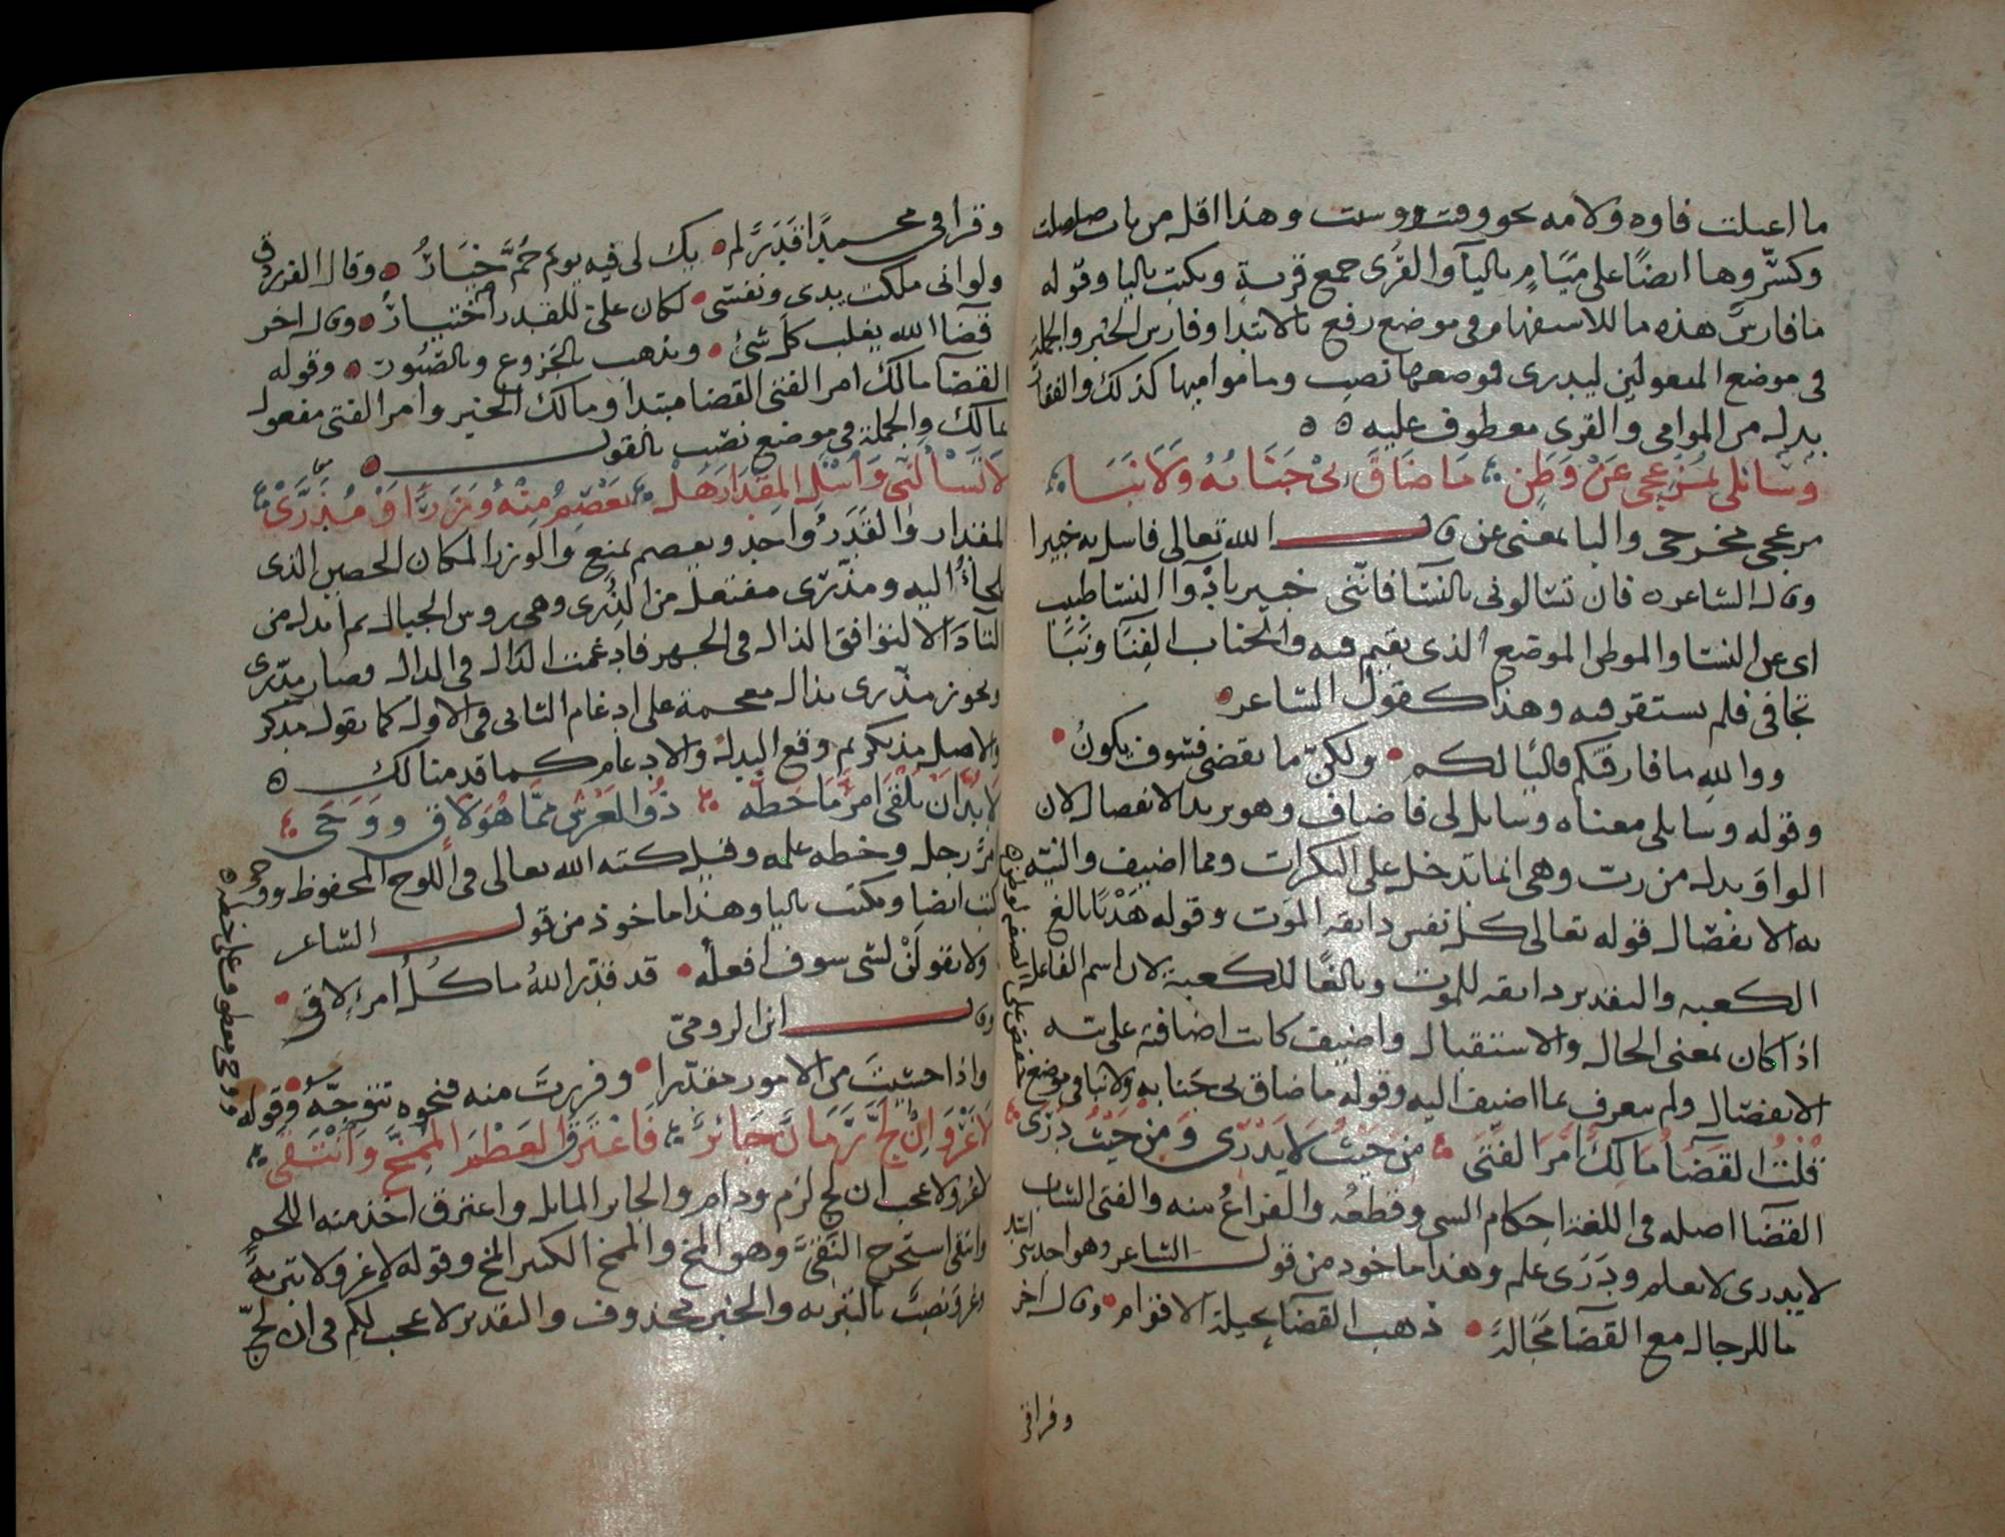 ما اعلت فاوه ولامه نحو وقت ووست وهذا اقل من باب صلصلت
وكسّروها ايضًا على ميَامٍ باليآ والقُرى جمع قرية ويكتب باليا وقوله
ما فارسٌ هذه ما للاستفهام وفى موضع رفع بالابتدا وفارس الخبر والجملة
فى موضع المفعولين ليدرى فموضعها نصب وما موا ميها كذلك والفقا
بدل من الموامى والقرى معطوف عليه
وَسَائلى بمُزعجى عَنْ وَطَنٍ مَا ضَاقَ بىْ جَنَابُهُ وَلَا نَبَا
مزعجى مخرجى والبا بمعنى عن قال الله تعالى فاسل به خبيرا
وقال الشاعر فان تسالونى بالنسا فانّنى خبير بادوآ النسا طبيب
اى عن النسا والموطن الموضع الذى يقيم فيه والجناب الفِنَا ونَبَا
تجافى فلم يستقر فيه وهذا كقول الشاعر
ووالله ما فارقتكم قاليًا لكم ولكنّ ما يقضى فسوف يكونُ
وقوله وسايلى معناه وسايل لى فاضاف وهو يريد الانفصال لان
الواوَ بدل من ربّ وهى انما تدخل على النكرات ومما اضيف والنية
به الانفصال قوله تعالى كل نفس ذايقة الموت وقوله هَدْيًا بالغ
الكعبه والتقدير ذايقه للموت وبالغًا للكعبة لان اسم الفاعل
اذا كان بمعنى الحال والاستقبال واضيف كانت اضافته على نية
الانفصال ولم يتعرف بما اضيف اليه وقوله ما ضاق بى جنابه ولا نبا فى موضع
خفض على الصفه لوطن
قُلْتُ القَضَآ مَالِكٌ أَمْرَ الفَتَى مِنْ حَيْثُ لَا يَدْرِى وَمِنْ حَيْثُ دَرَى
القضآ اصله فى اللغة احكام الشى وقطعُه والفراغُ منه والفتى الشاب
لا يدرى لا يعلم ودَرَى علم وهذا ماخوذ من قول الشاعر وهو احد
ما للرجال مع القضآ مَحَالةٌ ذهب القضآ بحيلة الاقوام وقال اخر
وفراقى
وفراقى محمدًا قَدَرٌ لم يك لى فيه يوم حُمَّ خِيَارُ وقال الفرزدق
ولو انى ملكت يدى ونفسى لكان علىّ للقدر اختيارُ وقال اخر
قضآ الله يغلب كل شئ ويذهب بالجَزوع وبالصَّبُور وقوله
القضآ مالك امر الفتى القضا مبتدا ومالك الخبر وامر الفتى مفعول
مالك والجملة فى موضع نصب بالقول
لَا تَسْألَنّى وَاسْئَلِ المِقْدَارَ هَلْ يَعْصِمُ مِنْهُ وَزَرٌ أَوْ مُدَّرَىْ
المقدار والقَدَرُ واحد ويعصم يمنع والوزر المكان الحصين الذى
يلجأ اليه ومذّرى مفتعل من الذُرى وهى روس الجبال ثم ابدل من
التآ دالا لتوافق الذال فى الجهر فادغمت الذال فى الدال فصار مدّرى
ويجوز مذّرى بذال معجمة على ادغام الثانى فى الاول كما تقول مذكر
والاصل مذتكر ثم وقع البدل والادغام كما قدمنا لك
لَا بُدَّ أَنْ يَلْقَى امرؤٌ مَا خَطَّه ذُو العَرْش ممّا هُوَ لَاقٍ وَوَحَى
امرؤ رجل وخطه علمه وقيل كتبه الله تعالى فى اللوح المحفوظ ووحى
كتب ايضا ويكتب باليا وهذا ماخوذ من قول الشاعر
ووحى معطوف على خطه
ولا تقولَنْ لشى سوف افعله قد قدّر اللهُ ما كلُ امرئٍ لاقى
وقال ابن الرومىّ
واذا خشيتَ من الامور مقدّرا وفررتَ منه فنحوه تتوجّهُ وقوله
لَا غَرْوَ إنْ لَجَّ زَمَانٌ جَائِرٌ فَاعْتَرَقَ العَظْمَ المُمِخَّ وَانْتَقَى
لا غرو لا عجب ان لج لزم ودام والجاير المايل واعترق اخذ منه اللحم
وانتقى استخرج النِقْىَ وهو المخ والممخ الكثير المخ وقوله لا غرو لا تبريةٌ
وغرو نصب بالتبريه والخبر محذوف والتقدير لا عجب لكم فى ان لج